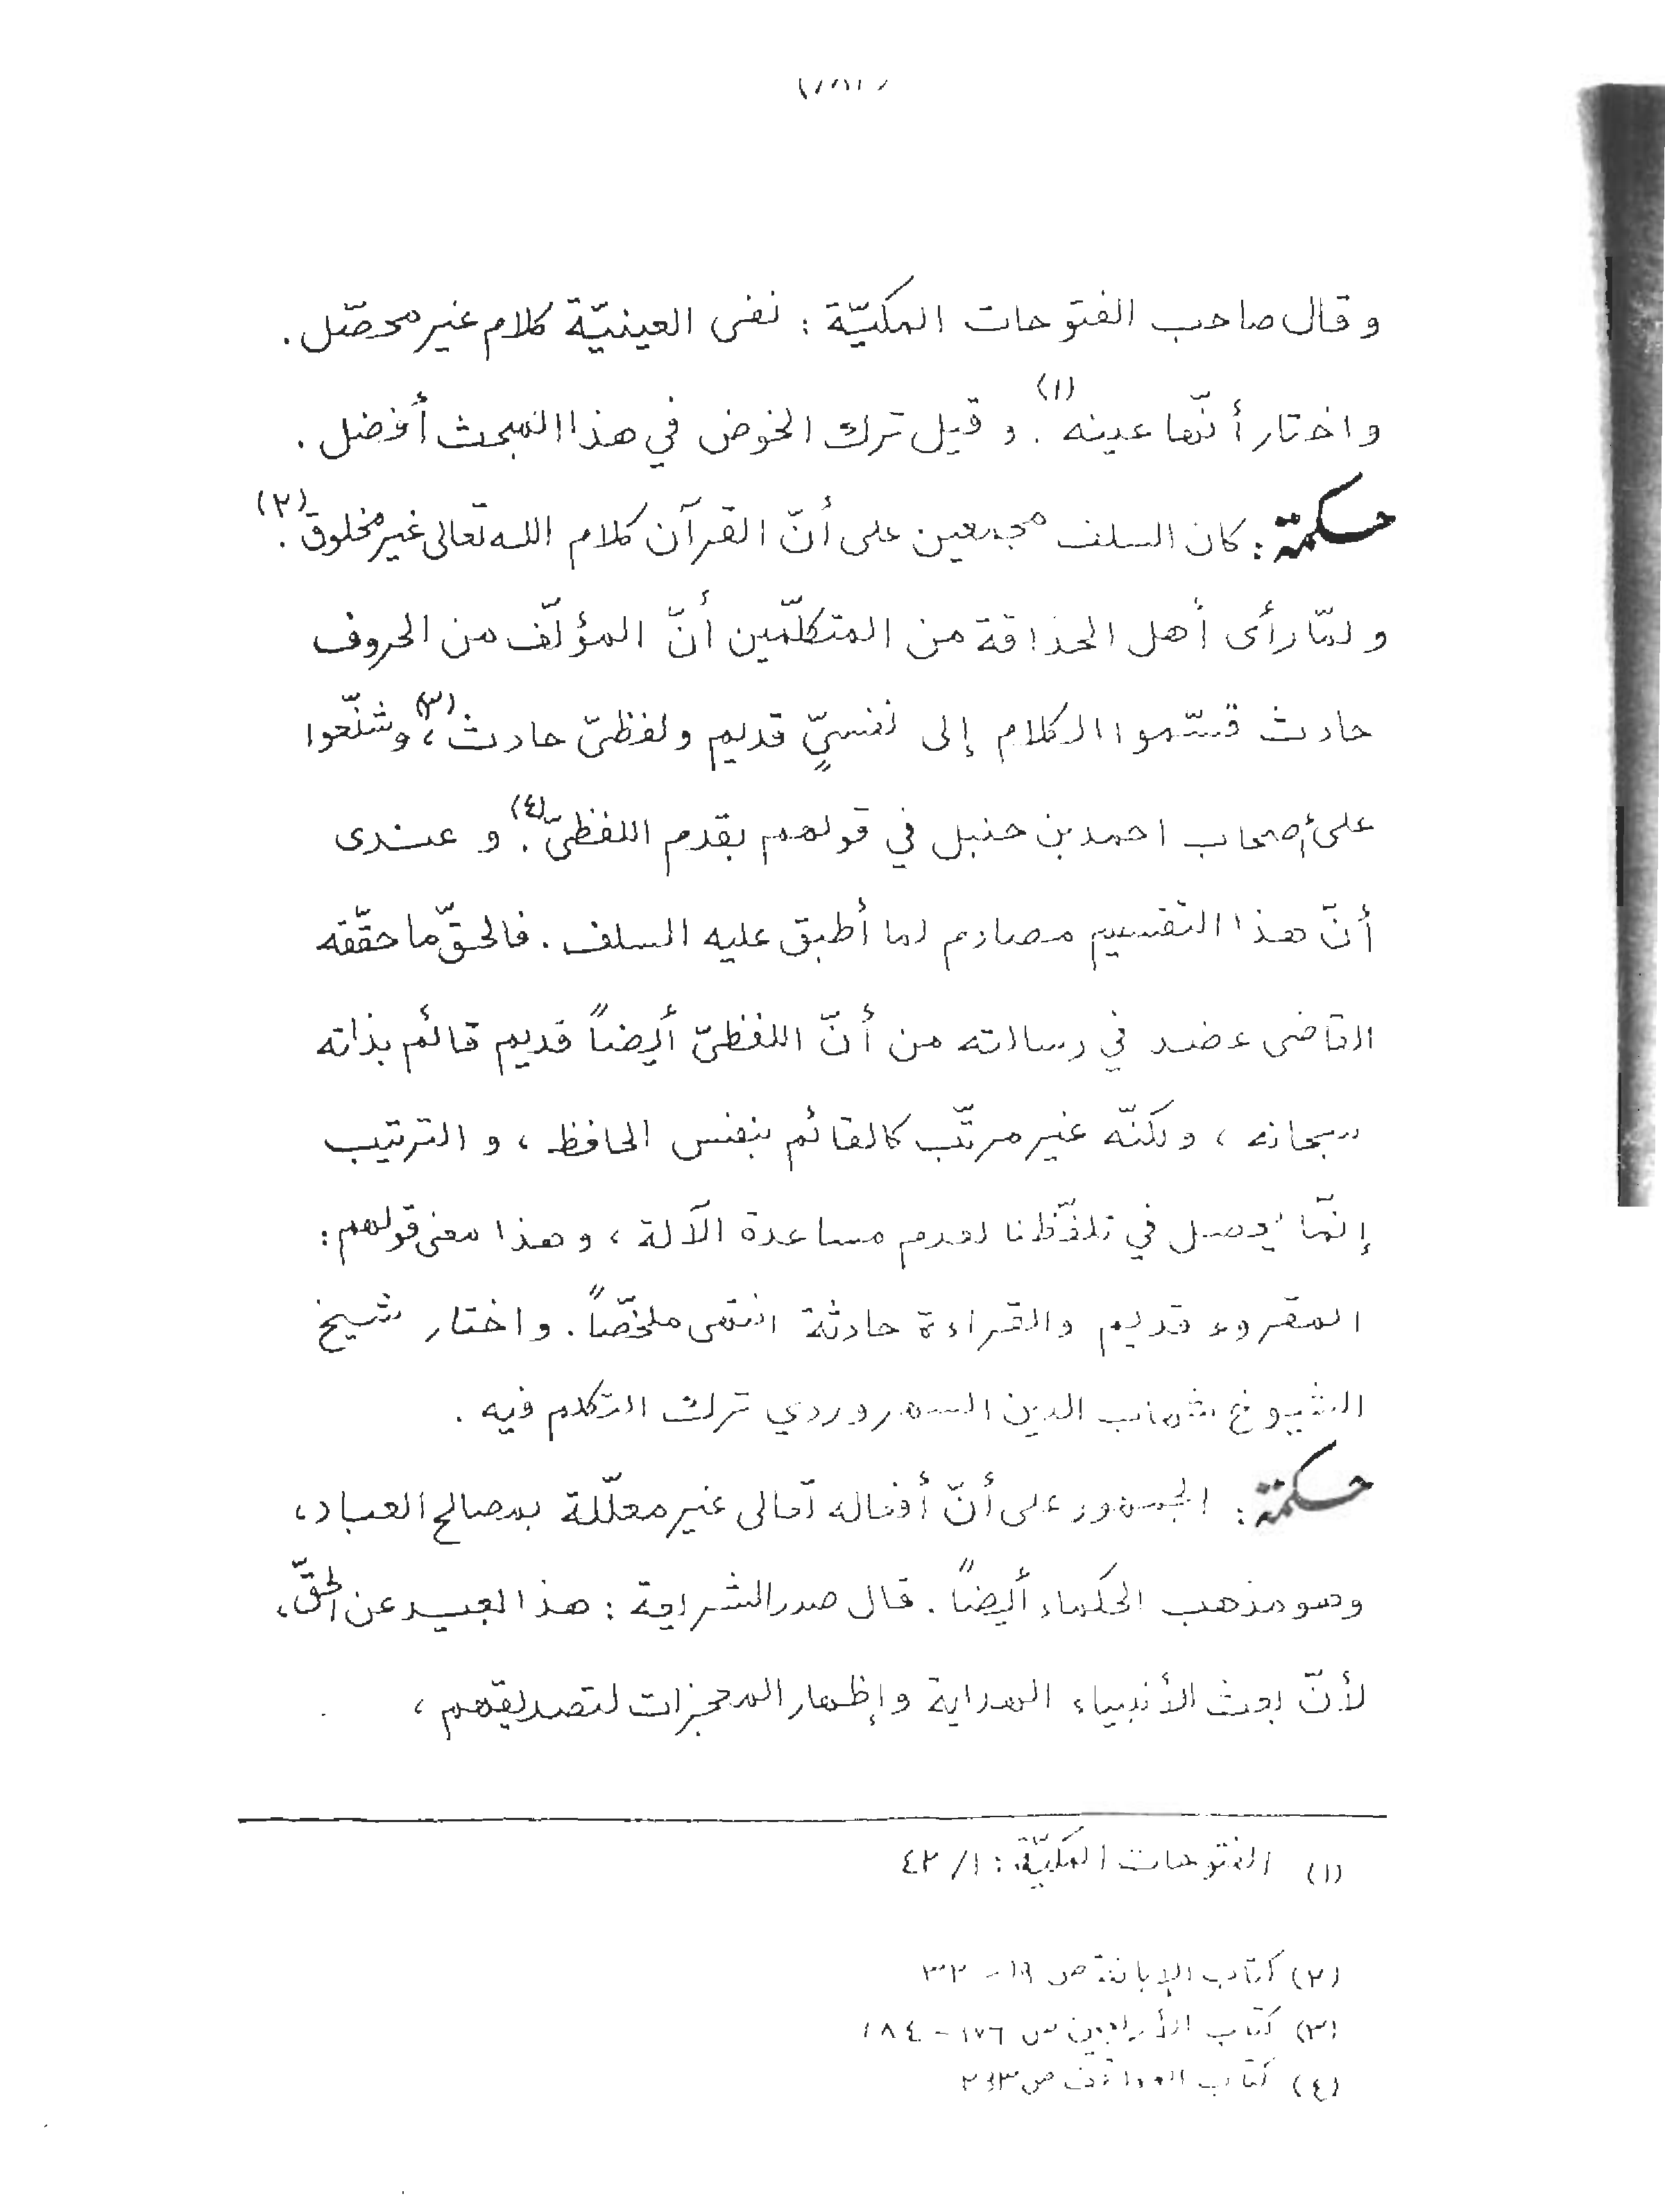 و قال صاحب الفتوحات المكيّة : نفى العينيّة كلام غير محصّل .
و اختار أنّها عينه (١) . و قيل ترك الخوض في هذا المبحث أفضل .
حكمة : كان السلف مجمعين على أنّ القرآن كلام الله تعالى غير مخلوق (٢) .
و لمّا رأى أهل الحذاقة من المتكلّمين أنّ المؤلّف من الحروف
حادث قسّموا الكلام إلى نفسيٍّ قديم ولفظىّ حادث (٣) ، وشنّعوا
على أصحاب احمد بن حنبل في قولهم بقدم اللفظىّ (٤) . و عندى
أنّ هذا التقسيم مصادم لما أطبق عليه السلف . فالحقّ ما حقّقه
القاضى عضد في رسالته من أنّ اللفظىّ أيضاً قديم قائم بذاته
سبحانه ، ولكنّه غير مرتّب كالقائم بنفس الحافظ ، و الترتيب
إنّما يحصل في تلفّظنا لعدم مساعدة الآلة ، و هذا معنى قولهم :
المقروء قديم والقراءة حادثة انتهى ملخّصاً . و اختار شيخ
الشيوخ شهاب الدين السهروردي ترك التكلم فيه .
حكمة : الجمهور على أنّ أفعاله تعالى غير معلّلة بمصالح العباد ،
وهو مذهب الحكماء أيضاً . قال صدر الشريعة : هذا لبعيد عن الحقّ ،
لأنّ بعث الأنبياء لهداية و إظهار المعجزات لتصديقهم ،
(١) الفتوحات المكيّة : ١/ ٤٢
(٢) كتاب الإبانة ص ١٩ - ٣٢
(٣) كتاب الأربعين ص ١٧٦ - ١٨٤
(٤) كتاب المواقف ص ٢٩٣